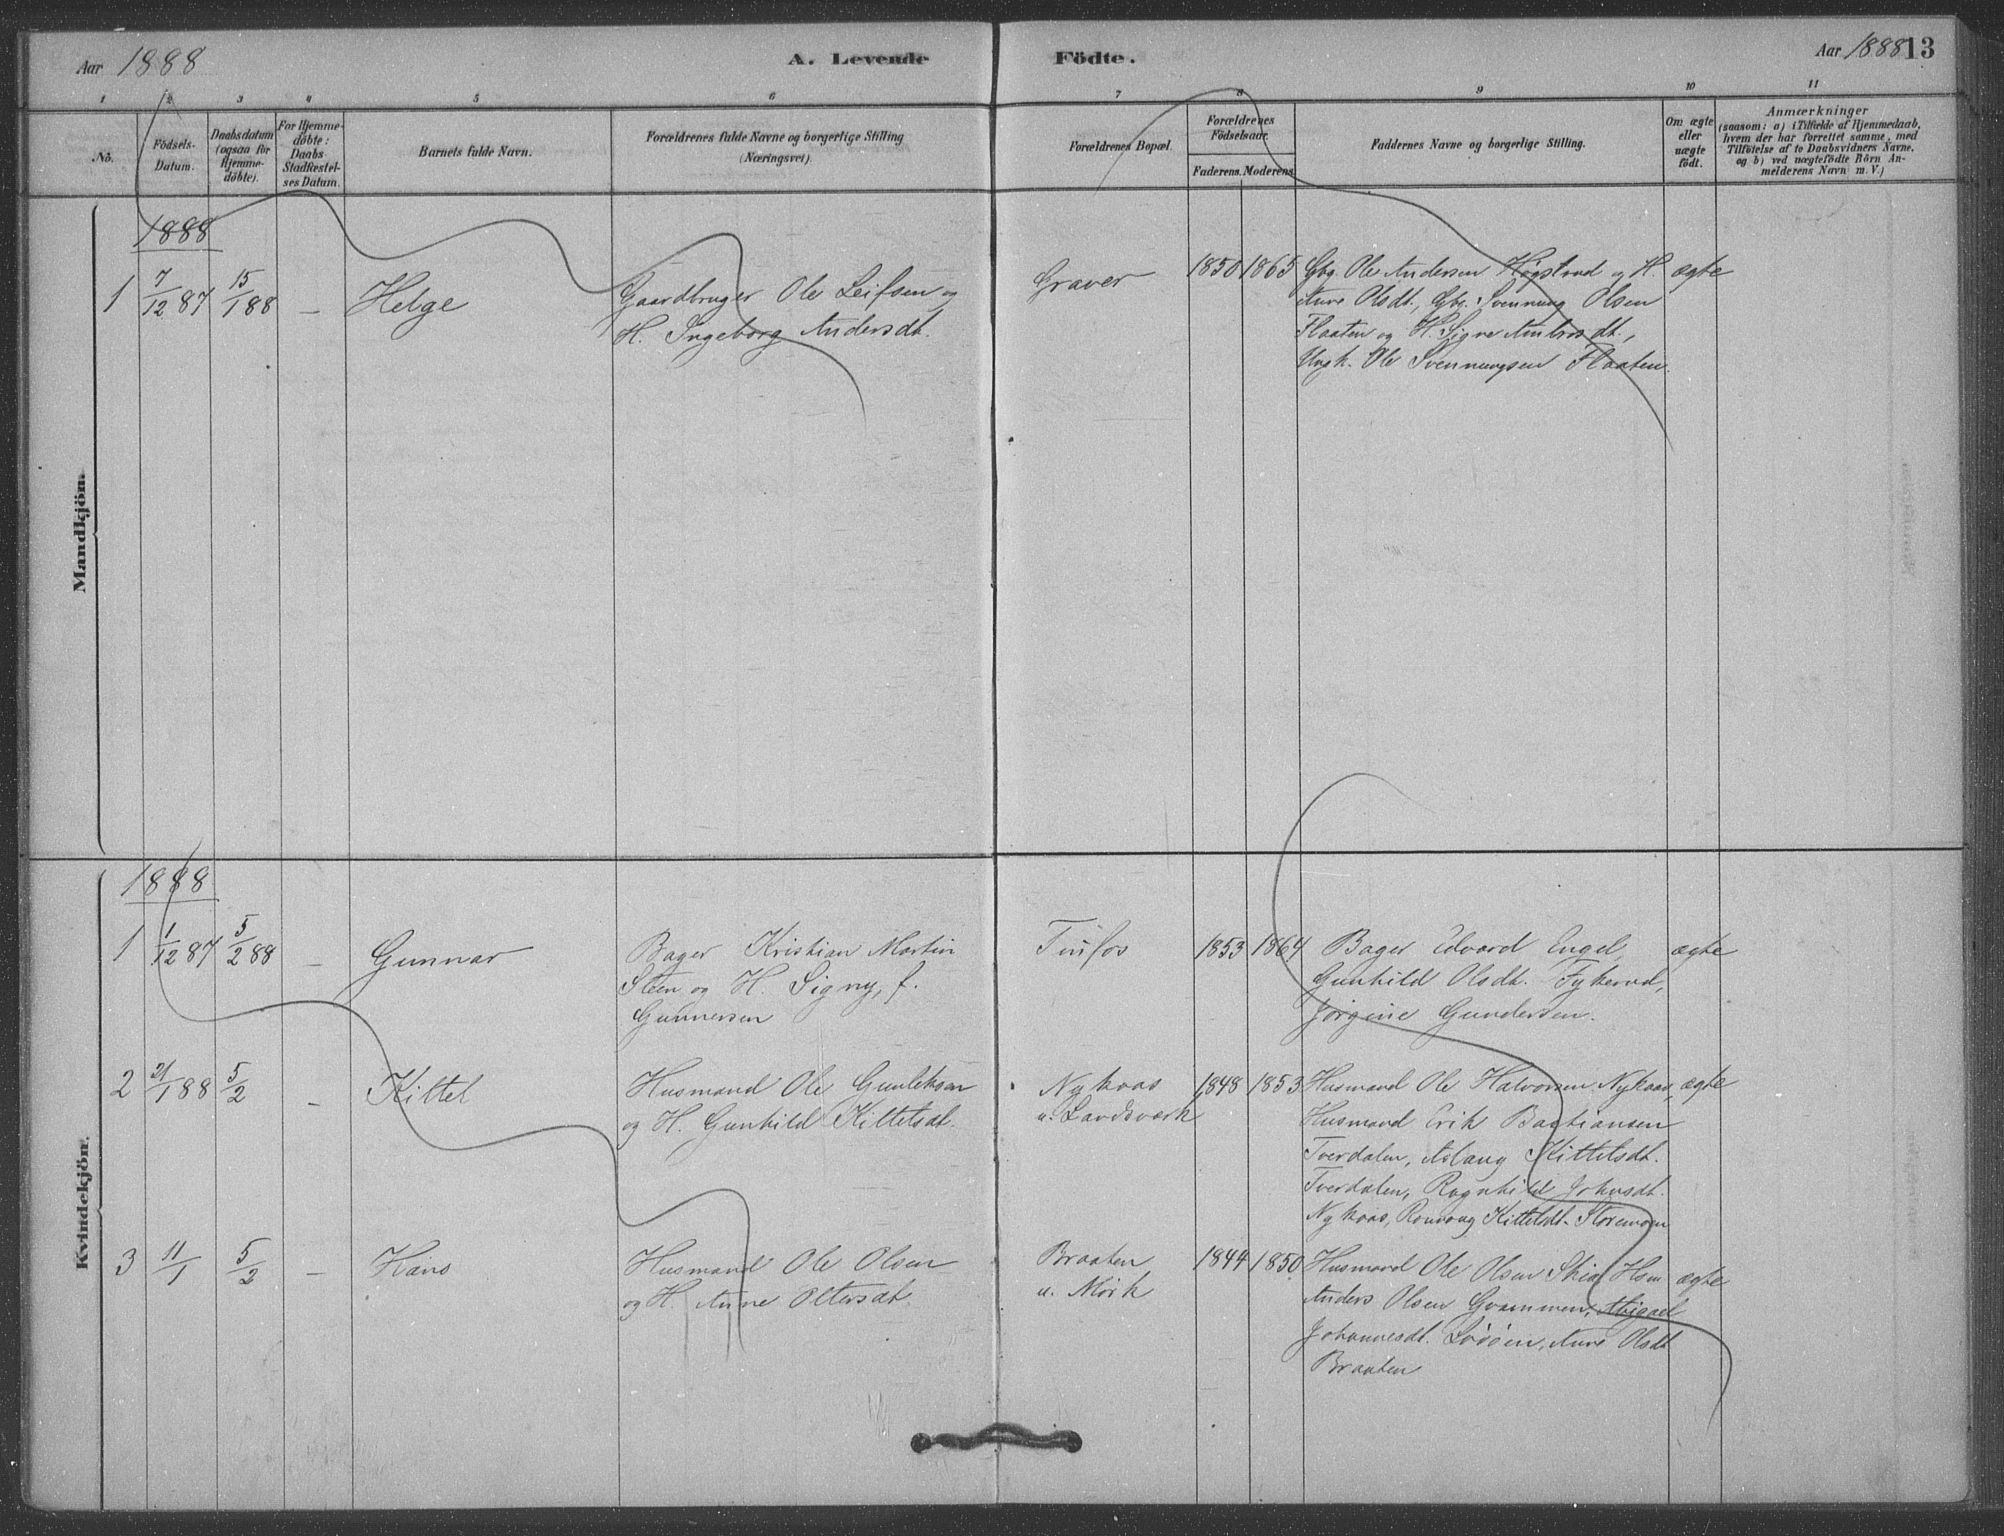 Aar 1888
A. Levende Födte.
Aar 1888 13
1 2 3 4 5 6 7 8 9 10 11
No.
Födsels-Datum.
Daabsdatum (ogsaa for Hjemme-döbte).
For Hjemme-döbte: Daabs Stadfæstel-ses Datum.
Barnets fulde Navn.
Forældrenes fulde Navne og borgerlige Stilling (Næringsvei).
Forældrenes Bopæl.
Forældrenes Födselsaar.
Faderens. Moderens.
Faddernes Navne og borgerlige Stilling.
Om ægte eller uægte födt.
Anmærkninger
(saasom: a) i Tilfælde af Hjemmedaab,
hvem der har forrettet samme, med
Tilföielse af to Daabsvidners Navne,
og b) ved uægtefödte Börn An-
melderens Navn m. V.)
Mandkjön.
1888
1 7/12 87 15/1 88 – Helge
Gaardbruger Ole Leifsen og
H. Ingeborg Andersdt.
Graver
1850 1865
Gbr. Ole Andersen Høgstrud og H.
Anne Olsdt., Gbr. Svennung Olsen
Flaaten og H. Signe Ambrosdt.,
Ungk. Ole Svennungsen Flaaten.
ægte
Kvindekjön.
1888
1 1/12 87 5/2 88 – Gunnar
Bager Kristian Martin
Steen og H. Signy, f.
Gunnersen
Tinfos
1853 1864
Bager Edvard Engel,
Gunhild Olsdt. Fykerud,
Jørgine Gundersen.
ægte
2 21/1 88 5/2 – Kittel
Husmand Ole Gunleksen
og H. Gunhild Kittelsdt.
Nykaas
u. Landsverk
1848 1853
Husmand Ole Halvorsen Nykaas,
Husmand Erik Bastiansen
Tverdalen, Aslaug Kittelsdt.
Tverdalen, Ragnhild Johnsdt.
Nykaas, Ronnoug Kittelsdt. Storemoen
ægte
3 11/1 5/2 – Hans
Husmand Ole Olsen
og H. Anne Ottersdt.
Braaten
u. Mørk
1844 1850
Husmand Ole Olsen Hsm
Anders Olsen Grammen, Abigael
Johannesdt. Anne Olsdt
Braaten
ægte